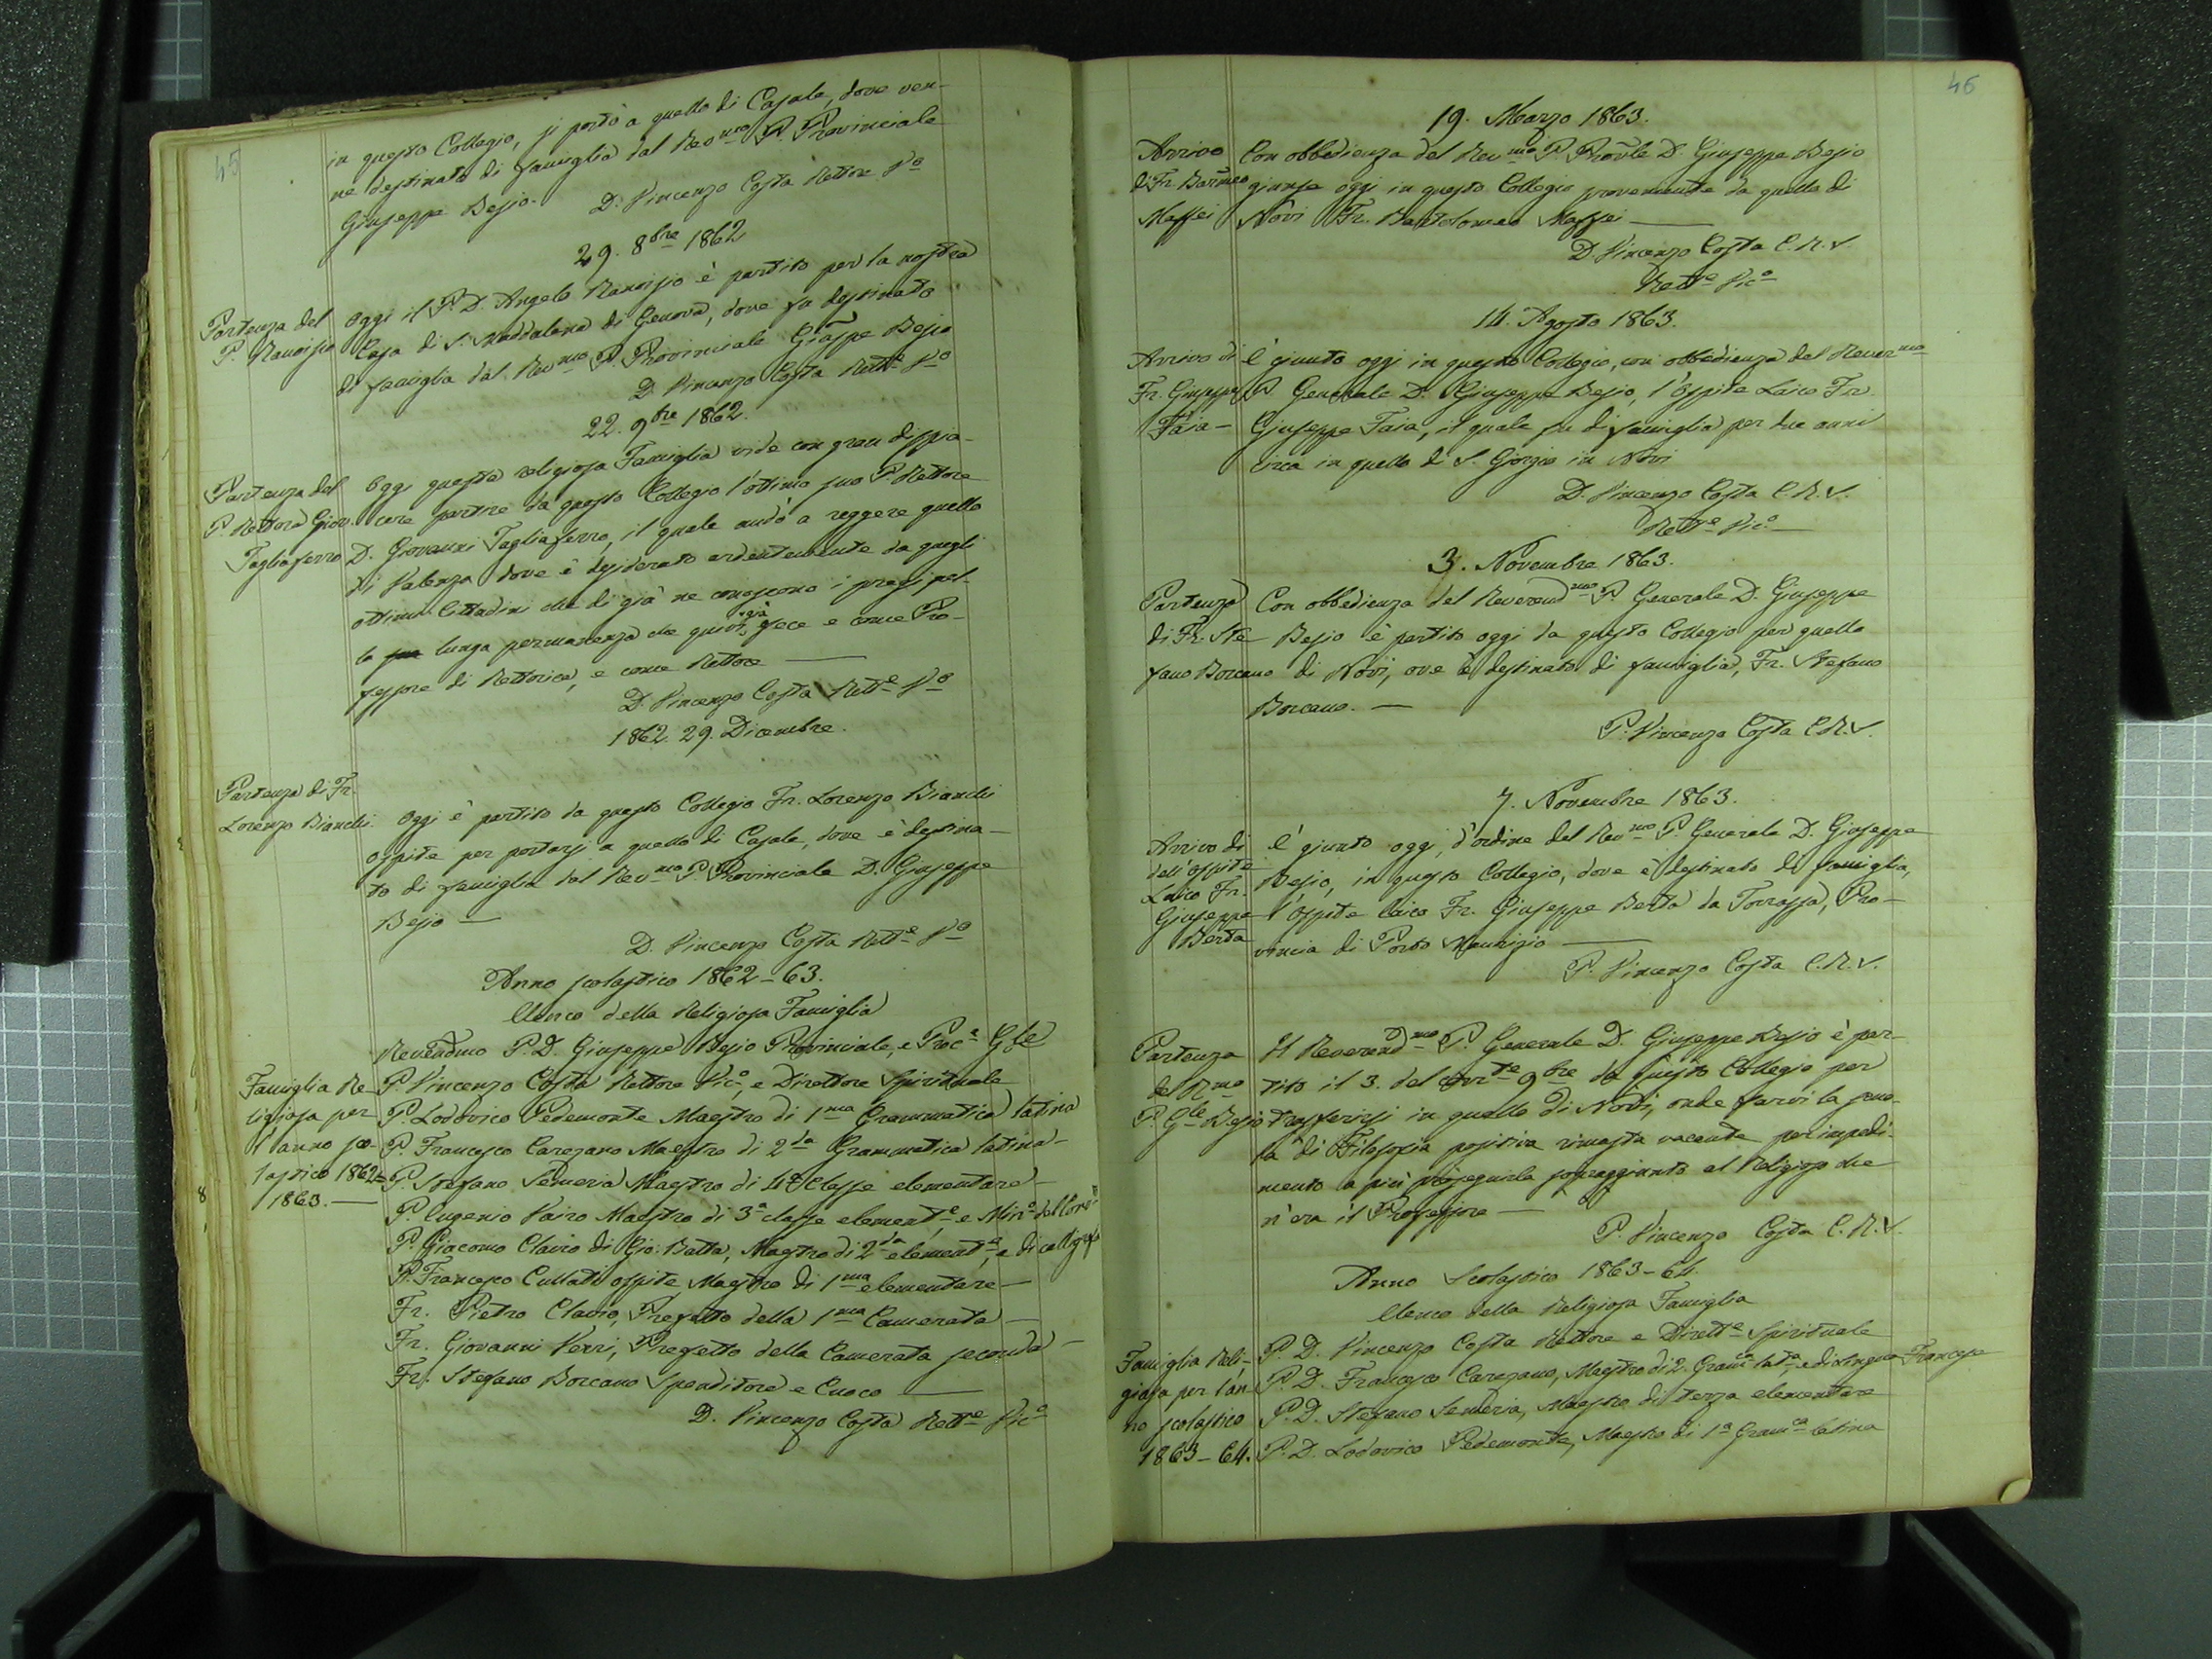 45
in questo Collegio, si portò a quello di Casale, dove ven-
ne destinato di famiglia dal Rev.mo P. Provinciale
Giuseppe Besio.
D. Vincenzo Costa Rettore V.o
29. 8bre 1862
Partenza del
P. Ravoisio
Oggi il P. D. Angelo Ravoisio è partito per la nostra
Casa di S. Maddalena di Genova, dove fu destinato
di famiglia dal Rev.mo P. Provinciale Giuseppe Besio
D. Vincenzo Costa Rett.e V.o
22. 9bre 1862.
Partenza del
P. Rettore Giov.
Tagliaferro
Oggi questa religiosa Famiglia vide con gran dispia-
cere partire da questo Collegio l'ottimo suo P. Rettore
D. Giovanni Tagliaferro, il quale andò a reggere quello
di Valenza dove è desiderato ardentemente da quegli
ottimi Cittadini che di già ne conoscono i pregi pel-
la sua lunga permanenza che quivi già fece e come Pro-
fessore di Rettorica, e come Rettore —
D. Vincenzo Costa Rett.e V.o
1862. 29. Dicembre.
Partenza di Fr.
Lorenzo Bianchi.
Oggi è partito da questo Collegio Fr. Lorenzo Bianchi
Ospite per portarsi a quello di Casale, dove è destina-
to di famiglia dal Rev.mo P. Provinciale D. Giuseppe
Besio —
D. Vincenzo Costa Rett.e V.o
Anno scolastico 1862-63.
Elenco della Religiosa Famiglia
Famiglia Re-
ligiosa per
l'anno sco-
lastico 1862=
1863. —
Revendmo P. D. Giuseppe Besio Provinciale, e Proc.e G.le
P. Vincenzo Costa Rettore Vic.o, e Direttore Spirituale
P. Lodovico Pedemonte Maestro di 1ma Grammatica latina
P. Francesco Carezano Maestro di 2da Grammatica latina -
P. Stefano Semeria Maestro di 4a Classe elementare -
P. Eugenio Vairo Maestro di 3a classe element.e, e Min.o del Conv.o
P. Giacomo Clavio di Gio: Batta, Maestro di 2da element.e, e di calligrafia
P. Francesco Cullati ospite, Maestro di 1ma elementare —
Fr. Pietro Clavio, Prefetto della 1ma Camerata —
Fr. Giovanni Verri, Prefetto della Camerata seconda —
Fr. Stefano Borcano Spenditore e Cuoco —
D. Vincenzo Costa Rett.e Vic.o
46
19. Marzo 1863.
Arrivo
di Fr. Barmeo
Maffei
Con obbedienza del Rev.mo P. Prov̄le D. Giuseppe Besio
giunse oggi in questo Collegio proveniente da quello di
Novi Fr. Bartolomeo Maffei —
D. Vincenzo Costa C. R. S.
Rett.e Vic.o
14. Agosto 1863.
Arrivo di
Fr. Giuseppe
Faia —
È giunto oggi in questo Collegio, con obbedienza del Rever.mo
P. Generale D. Giuseppe Besio, l'Ospite Laico Fr.
Giuseppe Faia, il quale fu di famiglia per due anni
circa in quello di S. Giorgio in Novi
D. Vincenzo Costa C. R. S.
Rett.e Vic.o
3. Novembre 1863.
Partenza
di Fr. Ste
fano Borcano
Con obbedienza del Reverend.mo P. Generale D. Giuseppe
Besio è partito oggi da questo Collegio per quello
di Novi, ove è destinato di famiglia, Fr. Stefano
Borcano. —
P. Vincenzo Costa C.R.S.
7. Novembre 1863.
Arrivo di
dell'Ospite
Laico Fr.
Giuseppe
Berta
È giunto oggi, d'ordine del Rev.mo P. Generale D. Giuseppe
Besio, in questo Collegio, dove è destinato di famiglia,
l'Ospite laico Fr. Giuseppe Berta da Torrazza, Pro-
vincia di Porto Maurizio —
P. Vincenzo Costa C.R.S.
Partenza
del R.mo
P. G.le Besio
Il Reverend.mo P. Generale D. Giuseppe Besio è par-
tito il 3. del corr.te 9bre da questo Collegio per
trasferirsi in quello di Novi, onde farvi la scuo-
la di Filosofia positiva rimasta vacante per impedi-
mento a più proseguirla sopraggiunto al Religioso che
n'era il Professore —
P. Vincenzo Costa C.R.S.
Anno Scolastico 1863-64.
Elenco della Religiosa Famiglia
Famiglia Reli-
giosa per l'an-
no scolastico
1863-64.
P. D. Vincenzo Costa Rettore e Dirett.e Spirituale
P. D. Francesco Carezano, Maestro di 2. Gram.ca lat.a, e di lingua Francese
P. D. Stefano Semeria, Maestro di terza elementare
P. D. Lodovico Pedemonte, Maestro di 1a Gram.ca latina